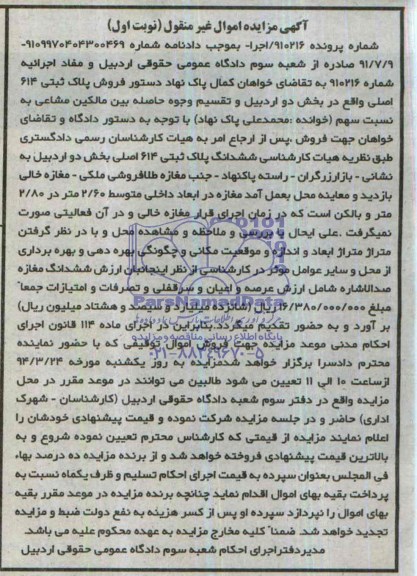 آگهی مزایده اموال غیر منقول (نوبت اول)
شماره پرونده ۹۱۰۲۱۶/اجرا- بموجب دادنامه شماره ۹۱۰۹۹۷۰۴۰۴۳۰۰۴۶۹-
۹۱/۷/۹ صادره از شعبه سوم دادگاه عمومی حقوقی اردبیل و مفاد اجرائیه
شماره ۹۱۰۲۱۶ به تقاضای خواهان کمال پاک نهاد دستور فروش پلاک ثبتی ۶۱۴
اصلی واقع در بخش دو اردبیل و تقسیم وجوه حاصله بین مالکین مشاعی به
نسبت سهم (خوانده :محمدعلی پاک نهاد) با توجه به دستور دادگاه و تقاضای
خواهان جهت فروش ،پس از ارجاع امر به هیات کارشناسان رسمی دادگستری
طبق نظریه هیات کارشناسی ششدانگ پلاک ثبتی ۶۱۴ اصلی بخش دو اردبیل به
نشانی - بازارزرگران - راسته پاکنهاد - جنب مغازه طلافروشی ملکی - مغازه خالی
بازدید و معاینه محل بعمل آمد مغازه در ابعاد داخلی متوسط ۲/۶۰ متر در ۲/۸۰
متر و بالکن است که در زمان اجرای قرار مغازه خالی و در آن فعالیتی صورت
نمیگرفت .علی ایحال با بررسی و ملاحظه و مشاهده محل و با در نظر گرفتن
متراژ متراژ ابعاد و اندازه و موقعیت مکانی و چگونگی بهره دهی و بهره برداری
از محل و سایر عوامل موثر در کارشناسی از نظر اینجانبان ارزش ششدانگ مغازه
صدالاشاره شامل ارزش عرصه و اعیان و سرقفلی و تصرفات و امتیازات جمعاً
مبلغ ۱۶/۳۸۰/۰۰۰/۰۰۰ ریال (شانزده میلیارد و سیصد و هشتاد میلیون ریال)
بر آورد و به حضور تقدیم میگردد.بنابراین در اجرای ماده ۱۱۴ قانون اجرای
احکام مدنی موعد مزایده جهت فروش اموال توقیفی که با حضور نماینده
محترم دادسرا برگزار خواهد شدمزایده به روز یکشنبه مورخه ۹۴/۳/۲۴
ازساعت ۱۰ الی ۱۱ تعیین می شود طالبین می توانند در موعد مقرر در محل
مزایده واقع در دفتر سوم شعبه دادگاه حقوقی اردبیل (کارشناسان - شهرک
اداری) حاضر و در جلسه مزایده شرکت نموده و قیمت پیشنهادی خودشان را
اعلام نمایند مزایده از قیمتی که کارشناس محترم تعیین نموده شروع و به
بالاترین قیمت پیشنهادی فروخته خواهد شد و از برنده مزایده ده درصد بهاء
فی المجلس بعنوان سپرده به قیمت اجرای احکام تسلیم و ظرف یکماه نسبت به
پرداخت بقیه بهای اموال اقدام نماید چنانچه برنده مزایده در موعد مقرر بقیه
بهای اموال را نپردازد سپرده او پس از کسر هزینه به نفع دولت ضبط و مزایده
تجدید خواهد شد. ضمناً کلیه مخارج مزایده به عهده محکوم علیه می باشد.
مدیردفتراجرای احکام شعبه سوم دادگاه عمومی حقوقی اردبیل
ParsNamadData
پایگاه اطلاع رسانی مناقصه و مزایده
۰۲۱-۸۸۳۴۹۶۷۰-۵